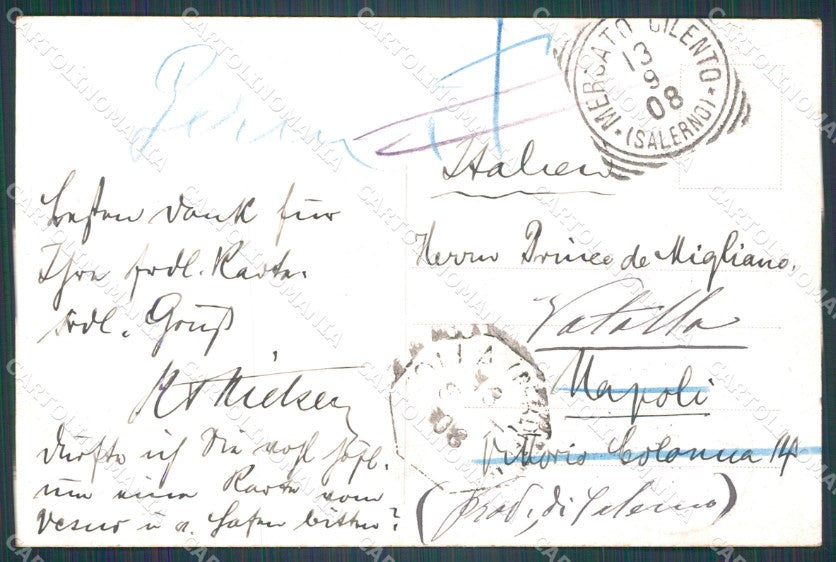 MERCATO CILENTO
(SALERNO)
13
9
08
Italien
Besten Dank für
Ihre frdl. Karte.
frdl. Gruß
Dürfte ich Sie wohl höfl.
um eine Karte vom
Vesuv u. a. Hafen bitten?
Herrn Prince de Migliano.
Vatolla
Napoli
Vittorio Colonna 14
(Prov. di Salerno)
08
CARTOLINOMANIA